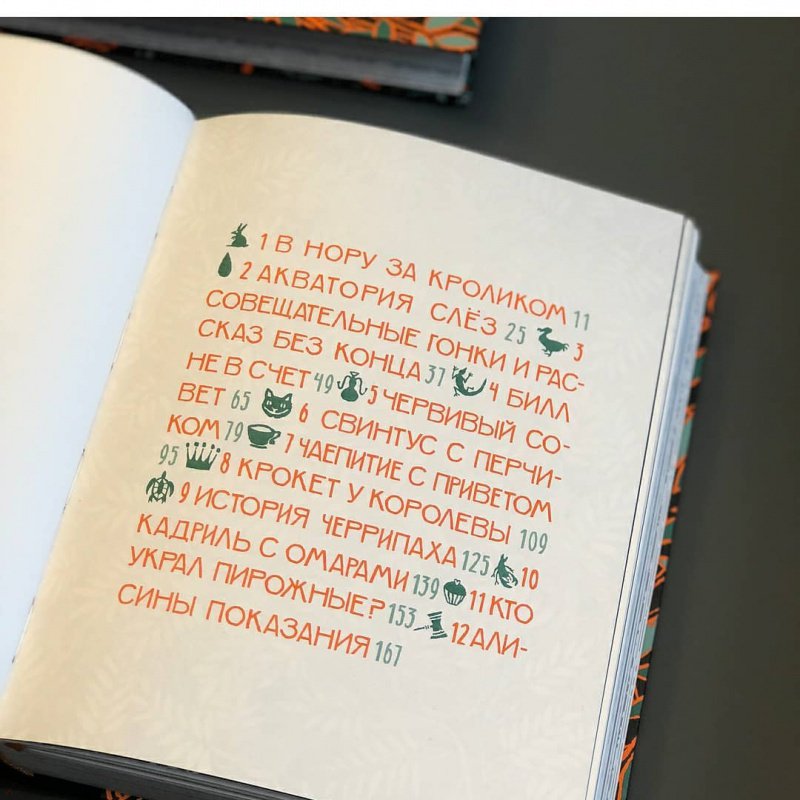 1 В НОРУ ЗА КРОЛИКОМ 11
2 АКВАТОРИЯ СЛЁЗ 25 3
СОВЕЩАТЕЛЬНЫЕ ГОНКИ И РАС-
СКАЗ БЕЗ КОНЦА 37 4 БИЛЛ
НЕ В СЧЕТ 49 5 ЧЕРВИВЫЙ СО-
ВЕТ 65 6 СВИНТУС С ПЕРЧИ-
КОМ 79 7 ЧАЕПИТИЕ С ПРИВЕТОМ
95 8 КРОКЕТ У КОРОЛЕВЫ 109
9 ИСТОРИЯ ЧЕРРИПАХА 125 10
КАДРИЛЬ С ОМАРАМИ 139 11 КТО
УКРАЛ ПИРОЖНЫЕ? 153 12 АЛИ-
СИНЫ ПОКАЗАНИЯ 167